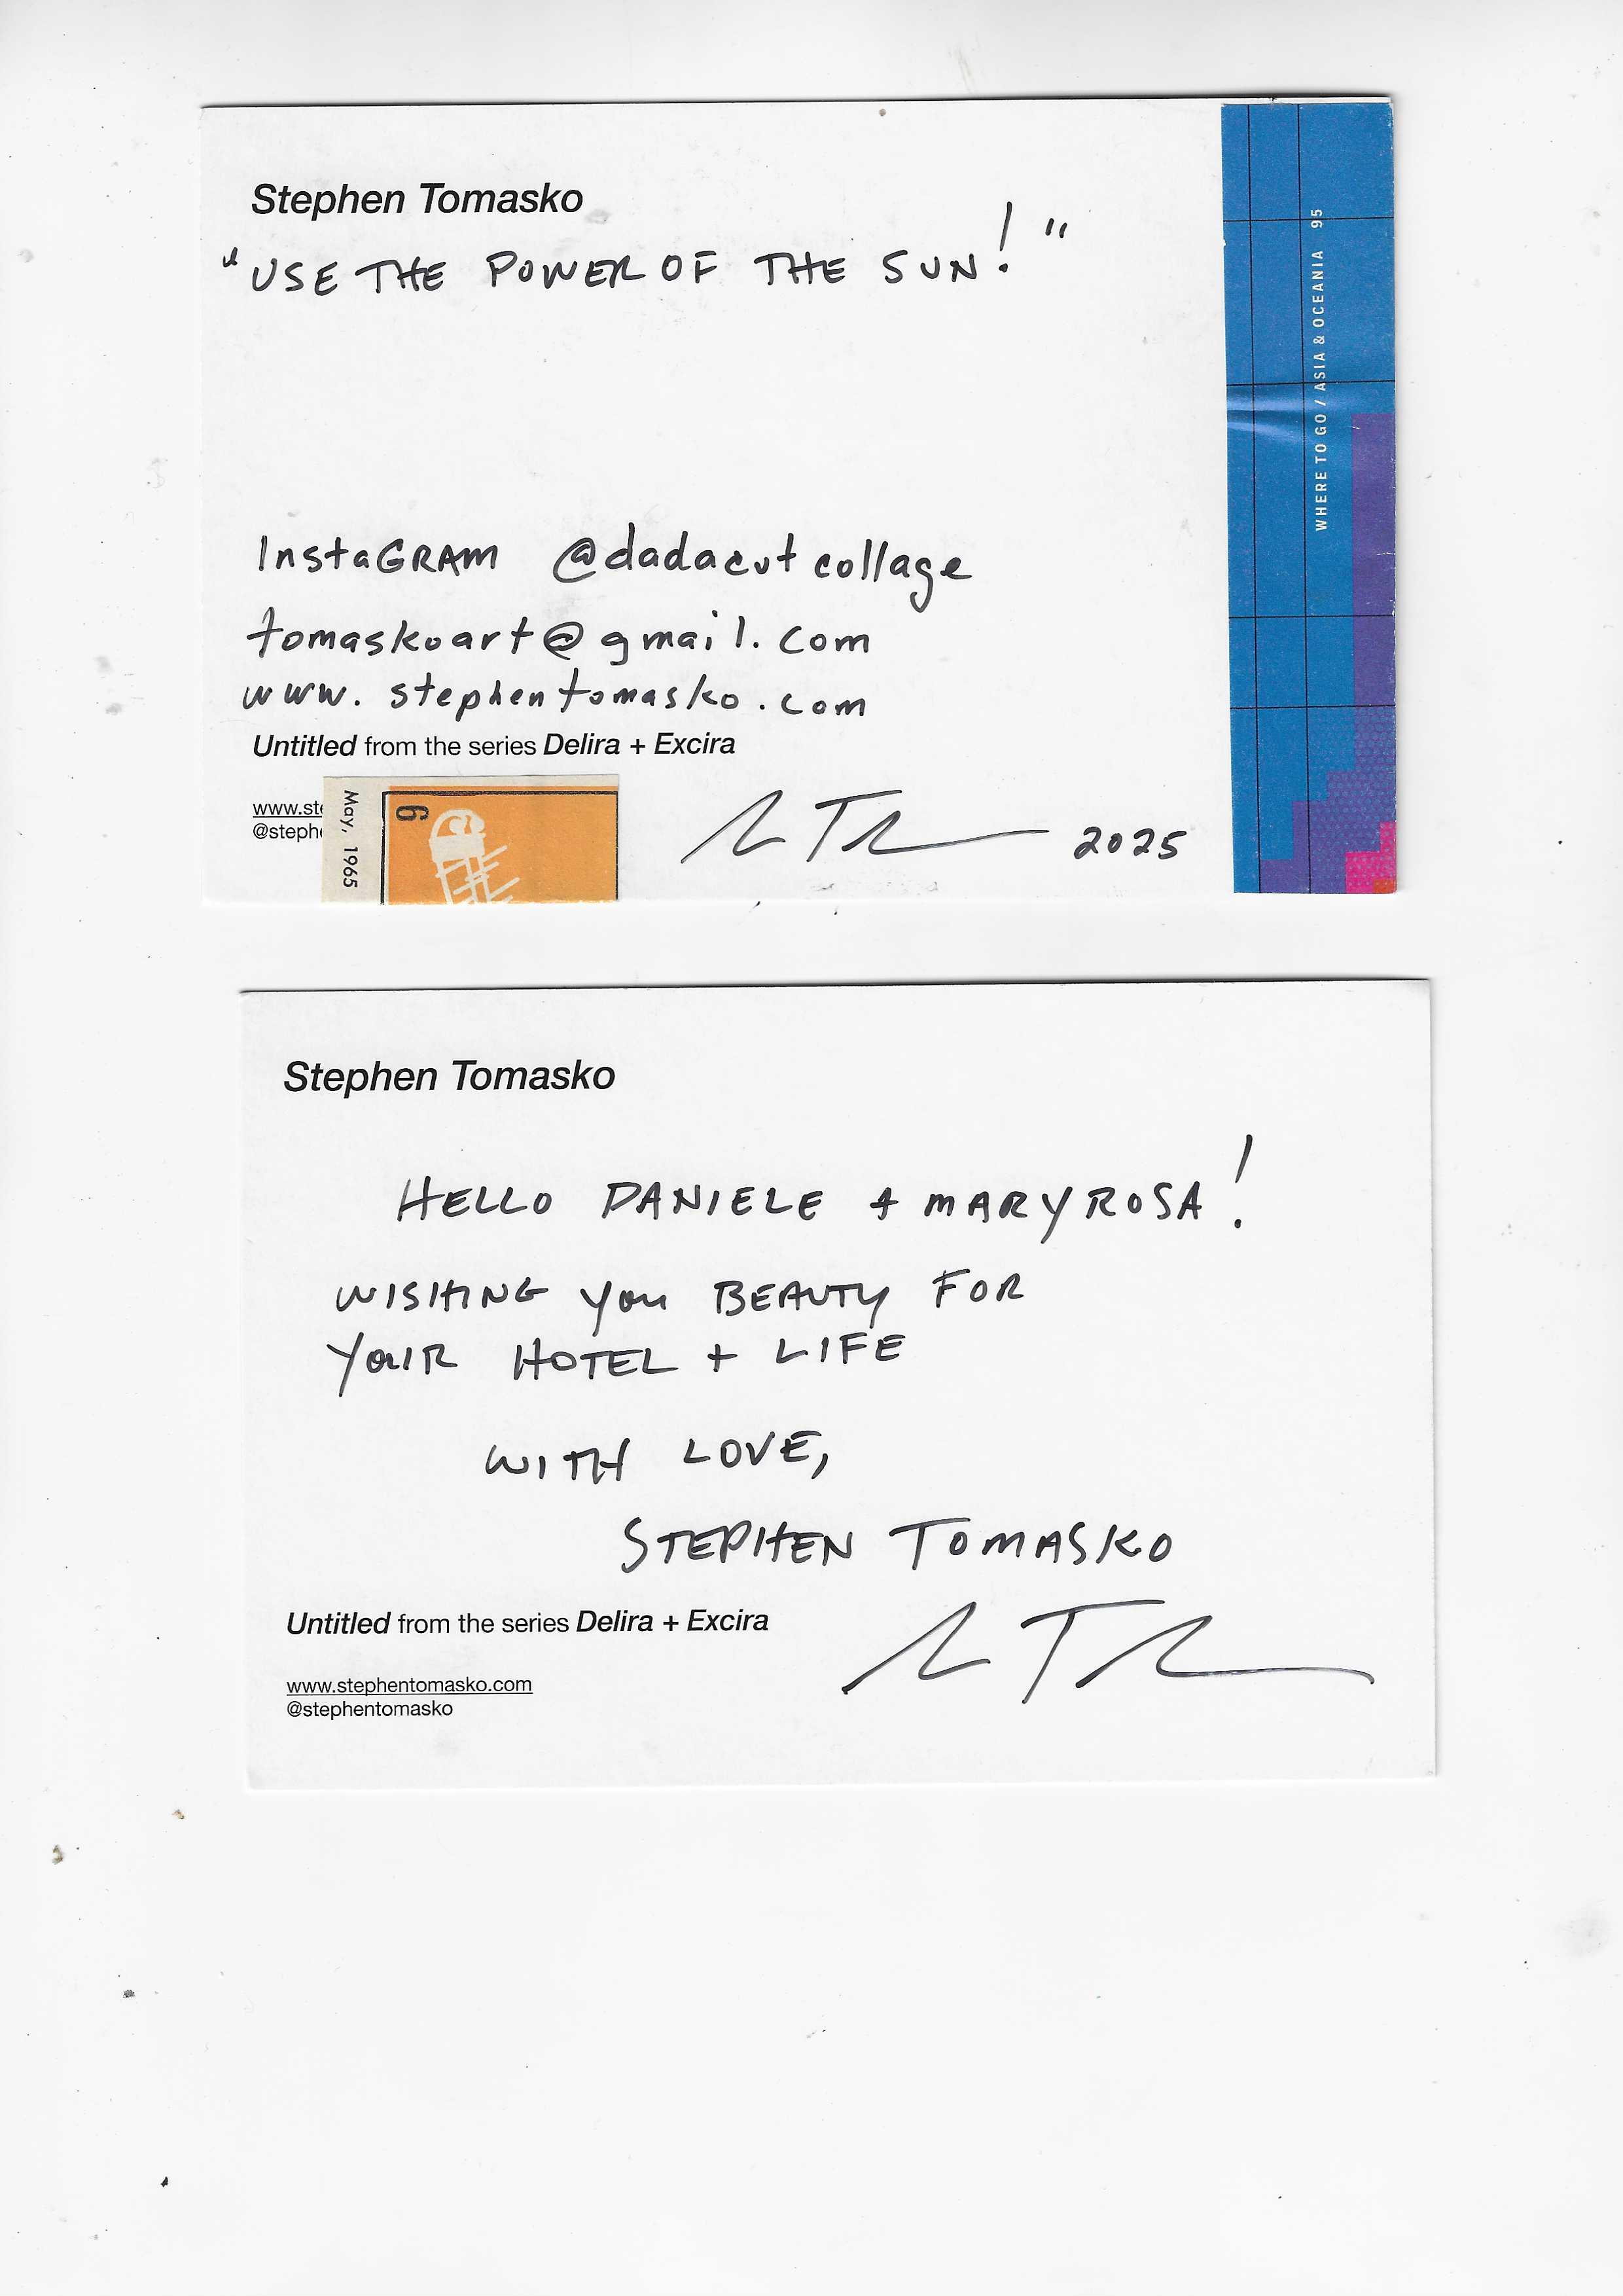 Stephen Tomasko
"USE THE POWER OF THE SUN!"
WHERE TO GO / ASIA & OCEANIA 95
InstaGRAM @dadacutcollage
tomaskoart@gmail.com
www.stephentomasko.com
Untitled from the series Delira + Excira
www.ste
@steph
May, 1965
6
2025
Stephen Tomasko
HELLO DANIELE + MARYROSA!
WISHING you BEAUTY FOR
YouR HOTEL + LIFE
WITH LOVE,
STEPHEN TOMASKO
Untitled from the series Delira + Excira
www.stephentomasko.com
@stephentomasko